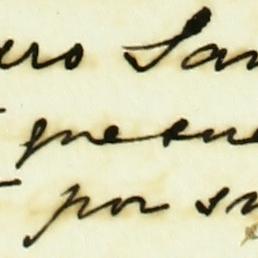 ero San
que su
por su